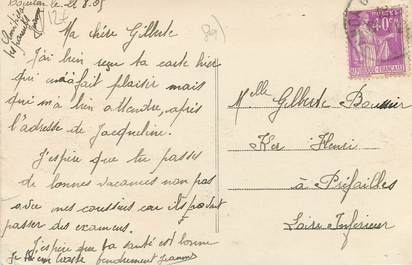 le 21.8.35
Ma chère Gilberte
J'ai bien reçu ta carte hier
qui m'a fait plaisir mais
qui m'a bien attendre, après
l'adresse de Jacqueline.
J'espère que tu passes
de bonnes vacances non pas
avec mes cousins car ils
passer des examens.
J'espère que ta santé est bonne
Je tendrement Jeanne
Melle Gilberte
Ker Henri
à Préfailles
Loire Inférieure
40c
REPUBLIQUE FRANÇAISE